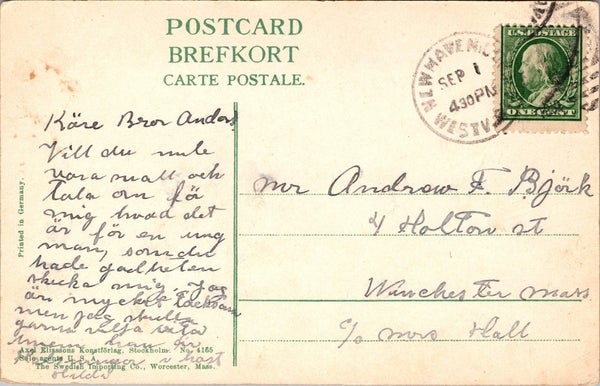 POSTCARD
BREFKORT
CARTE POSTALE.
NEW HAVEN, C
SEP 1
4 30 PM
WESTV
U.S. POSTAGE
ONE CENT
Käre Bror Anders
Vill du nule
vara snall och
tala om för
mig hvad det
är för en ung
man, som du
hade godheten
skicka mig. Jag
är mycket tacksam
men jag skulle
gärna vilja veta
hvem han är
i hast
Hilda
Mr Andrew F. Björk
4 Holton st
Winchester Mass
c/o Mrs Hall
Printed in Germany.
Axel Eliassons Konstförlag, Stockholm. No. 4165
Sole agents U. S. A.
The Swedish Importing Co., Worcester, Mass.